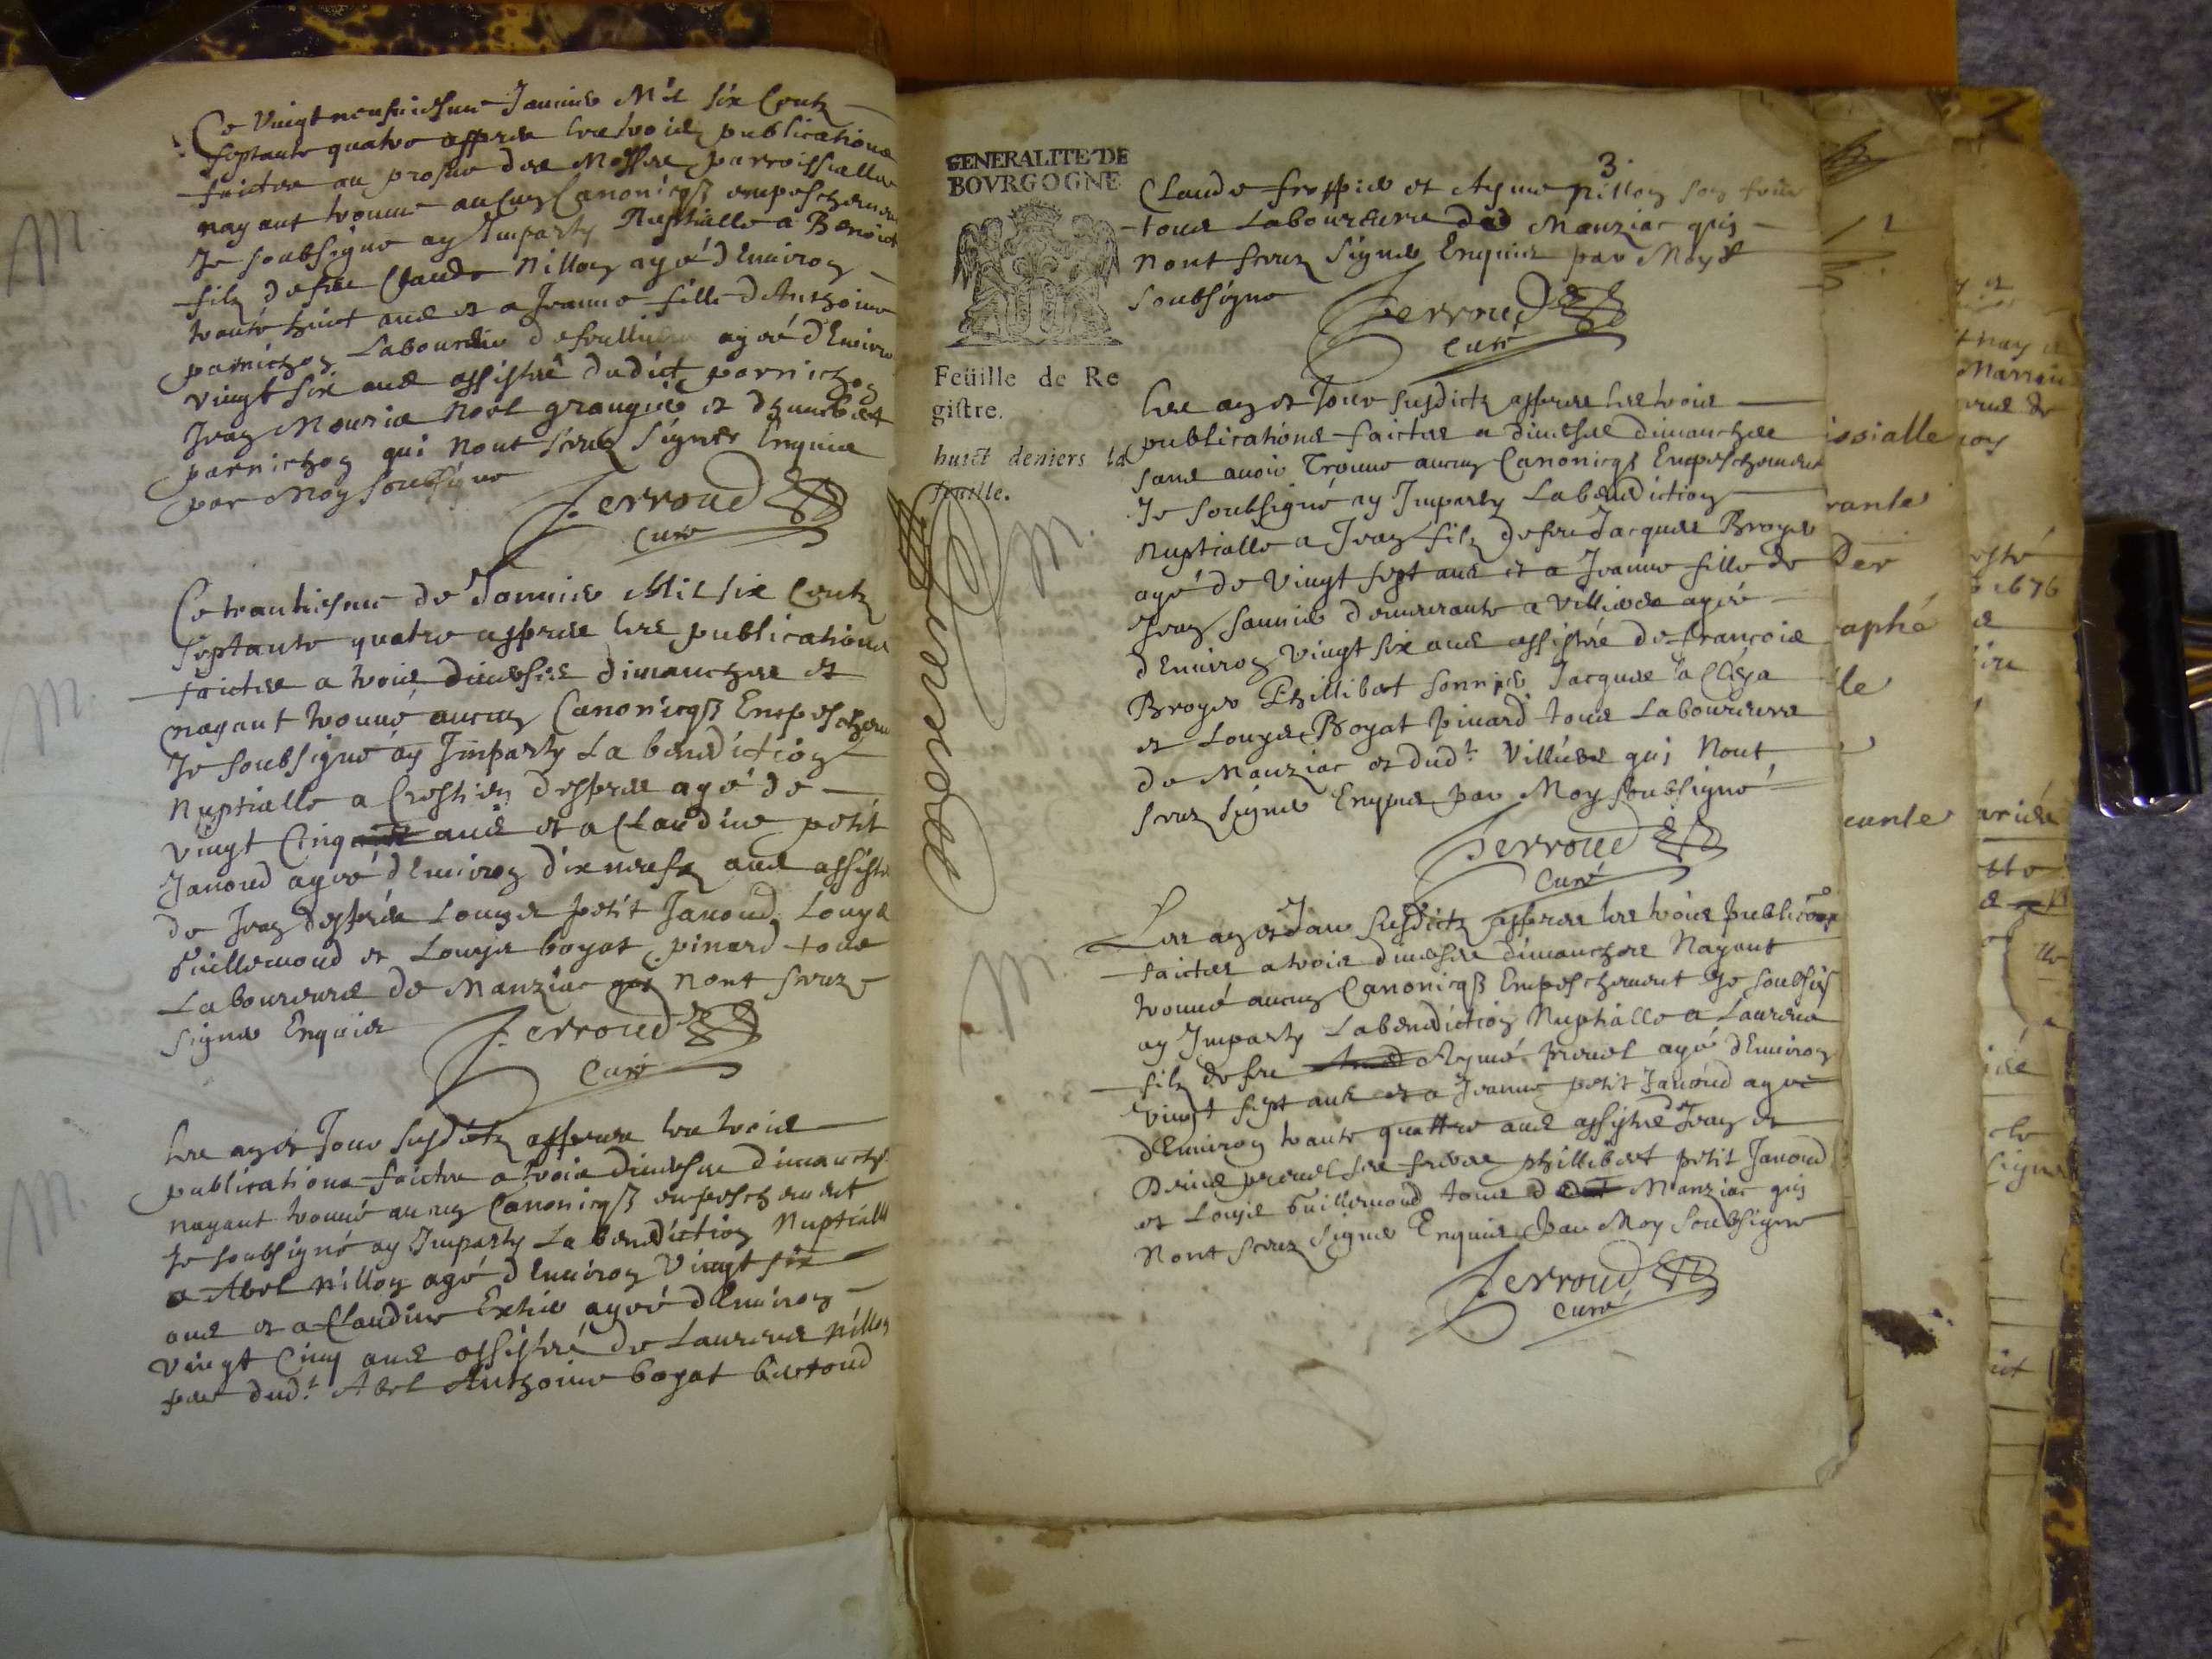 Ce vingt neufviesme Janvier Mil six Centz
septante quatre appres les trois publications
faictes au prosne des Messes parroissialles
nayant trouvé aulcung Canonicqz empeschement
Je soubsigné ay Imparty Nuptialle a Benoict
filz de feu Claude Nillon agé d'Environ
trante huict ans et a Jeanne fille d'Anthoine
parnichon Laboureur de agée d'Environ
vingt six ans assisté dudict parnichon
Jean Mouria Noel grangier et Humbert
parnichon qui nont sceuz signer Enquis
par Moy soubsigné
Ferroud
curé
Ce trantiesme de Janvier Mil six Centz
septante quatre appres les publications
faictes a trois diverses dimanches et
nayant trouvé aucung Canonicqz Empeschem
Je soubsigné ay Imparty La benediction
Nuptialle a Crestien despres agé de
vingt Cinq ans et a Claudine petit
Janoud agée d'Environ dix neufz ans assisté
de Jean despres Louys petit Janoud, Louys
Guillemoud et Louys boyat pinard tous
Laboureurs de Manziac qui nont sceuz
signer Enquis
Ferroud
Curé
Les an et Jour susdictz appres les trois
publications faictes a trois diverses dimanch.
nayant trouvé aucung Canonicqz empeschement
Je soubsigné ay Imparty La benediction Nuptialle
a Abel Nillon agé d'Environ Vingt six
ans et a Claudine agée d'Environ
vingt Cinq ans assisté de Laurens Nillon
pere dud.t Abel Anthoine boyat bertoud
GENERALITE DE
BOVRGOGNE
Feüille de Re
gistre.
huict deniers la
feuille.
3.
Claude et Ayme Nillon son frere
tous Laboureurs de Manziac qui
nont sceuz signer Enquis par Moy
soubsigné
Ferroud
curé
Les an et Jour susdictz appres les trois
publications faictes a diverses dimanches
sans avoir Trouvé aucung Canonicqz Empeschement
Je soubsigné ay Imparty La benediction
Nuptialle a Jean filz de feu Jacques Broyer
agé de vingt sept ans et a Jeanne fille de
Jean sonnier demeurante a Villieres agée
d'Environ vingt six ans assisté de françois
Broyer Phillibert sonnier Jacques
et Louys Boyat pinard tous Laboureurs
de Manziac et dud.t Villieres qui Nont
sceuz signer Enquis par Moy soubsigné
Ferroud
Curé
Les an et Jour susdictz appres les trois
faictes a trois diverses dimanches Nayant
trouvé aucung Canonicqz Empeschement Je soubsig
ay Imparty La benediction Nuptialle a Laurens
filz de feu Aymé prevel agé d'Environ
vingt sept ans et a Jeanne petit Janoud agée
d'Environ trante quattre ans assisté Jean et
Denis prevel ses freres phillibert petit Janoud
et Louys Guillemoud tous de Manziac qui
Nont sceuz signer Enquis Par Moy soubsigné
Ferroud
curé